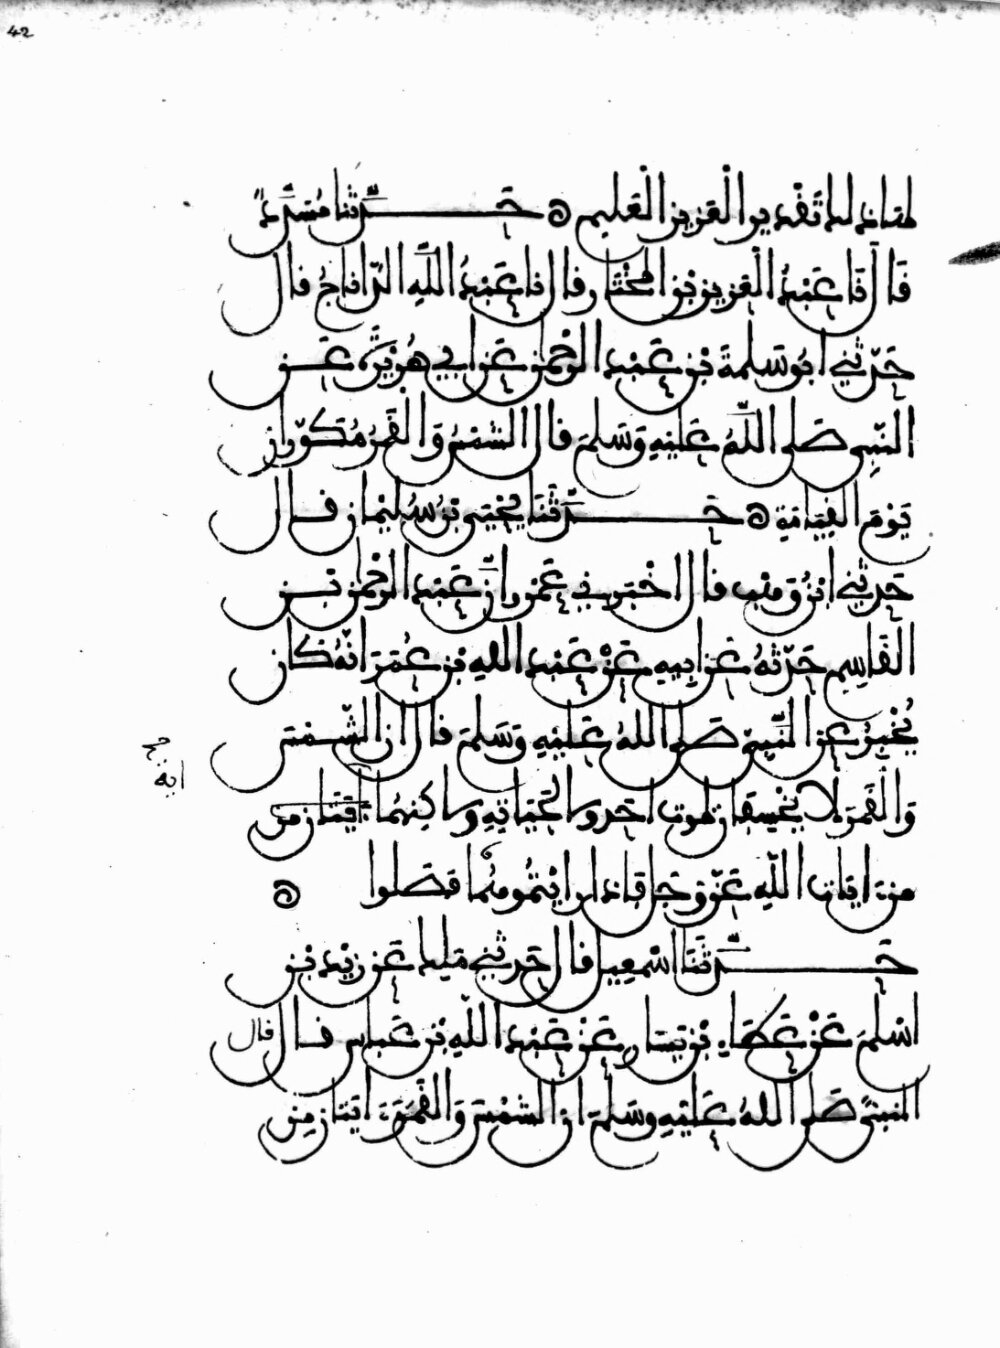 42
لها ذلك تقدير العزيز العليم ه حدثنا مسدد
قال نا عبد العزيز بن المختار قال نا عبد الله الداناج قال
حدثني ابو سلمة بن عبد الرحمن عن ابي هريرة عن
النبي صلى الله عليه وسلم قال الشمس والقمر مكوران
يوم القيامة ه حدثنا يحيى بن سليمان قال
حدثني ابن وهب قال اخبرني عمرو ان عبد الرحمن بن
القاسم حدثه عن ابيه عن عبد الله بن عمر انه كان
يخبر عن النبي صلى الله عليه وسلم قال ان الشمس
والقمر لا يخسفان لموت احد ولا لحياته ولاكنهما ايتان من
اية
من ايات الله عز وجل فاذا رايتموهما فصلوا ه
حدثنا اسمعيل قال حدثني ملك عن زيد بن
اسلم عن عطاء بن يسار عن عبد الله بن عباس قال قال
النبي صلى الله عليه وسلم ان الشمس والقمر ايتان من